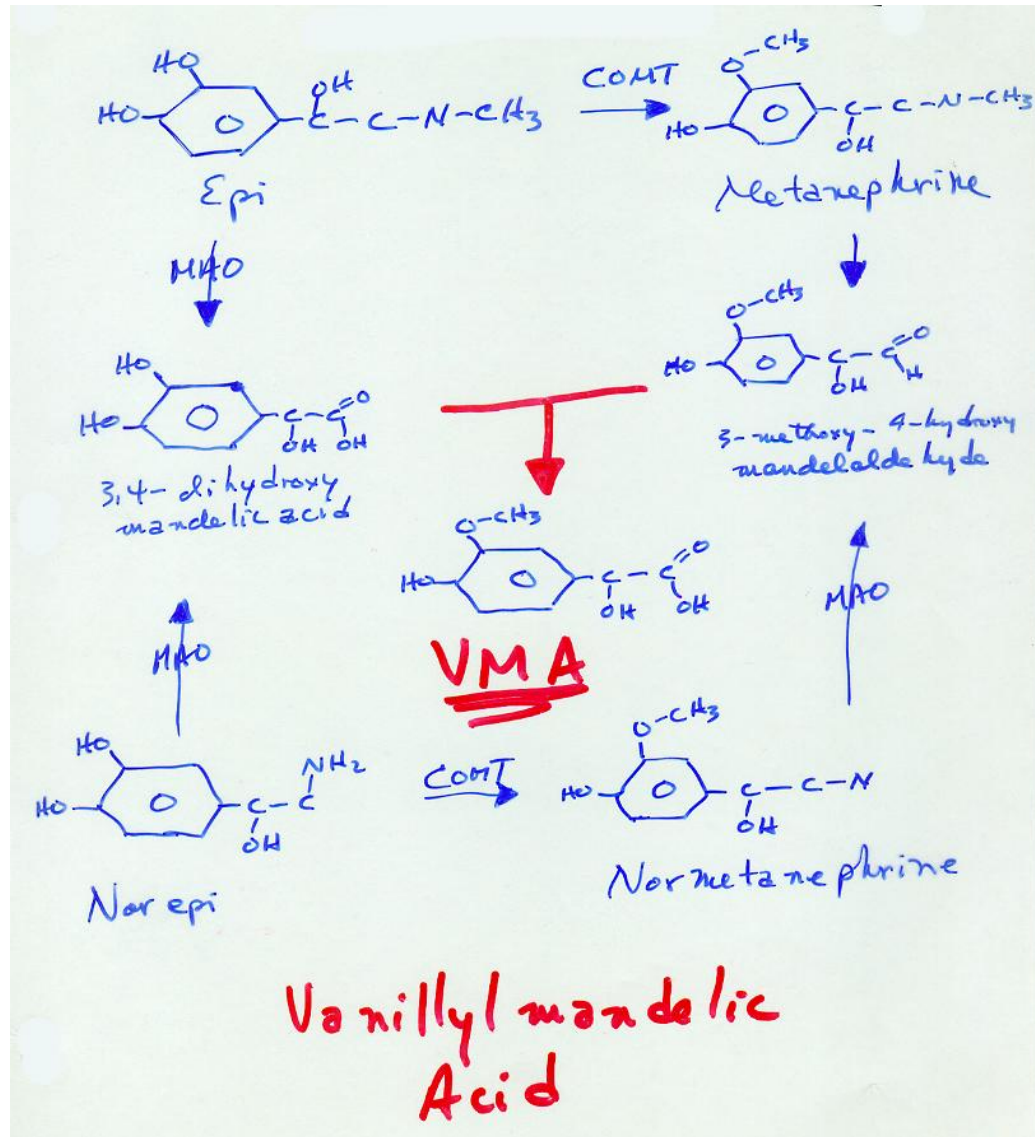 HO
HO
OH
C-C-N-CH3
COMT
O-CH3
HO
C-C-N-CH3
OH
Epi
Metanephrine
MAO
HO
HO
C-C=O
OH OH
3,4-dihydroxy
mandelic acid
O-CH3
HO
C-C=O
OH H
3-methoxy-4-hydroxy
mandelaldehyde
O-CH3
HO
C-C=O
OH OH
VMA
MAO
MAO
HO
HO
NH2
C-C
OH
COMT
O-CH3
HO
C-C-N
OH
Norepi
Normetanephrine
Vanillylmandelic
Acid